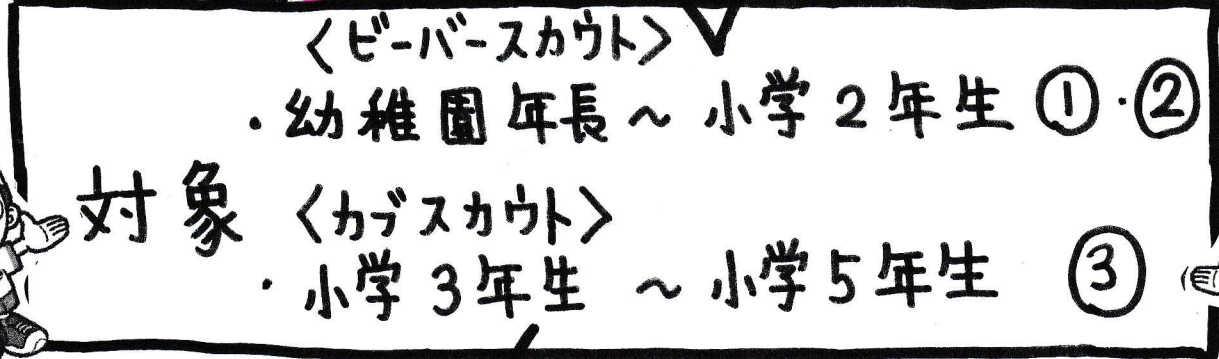 〈ビーバースカウト〉
・幼稚園年長~小学2年生 ①・②
対象
〈カブスカウト〉
・小学3年生 ~小学5年生 ③